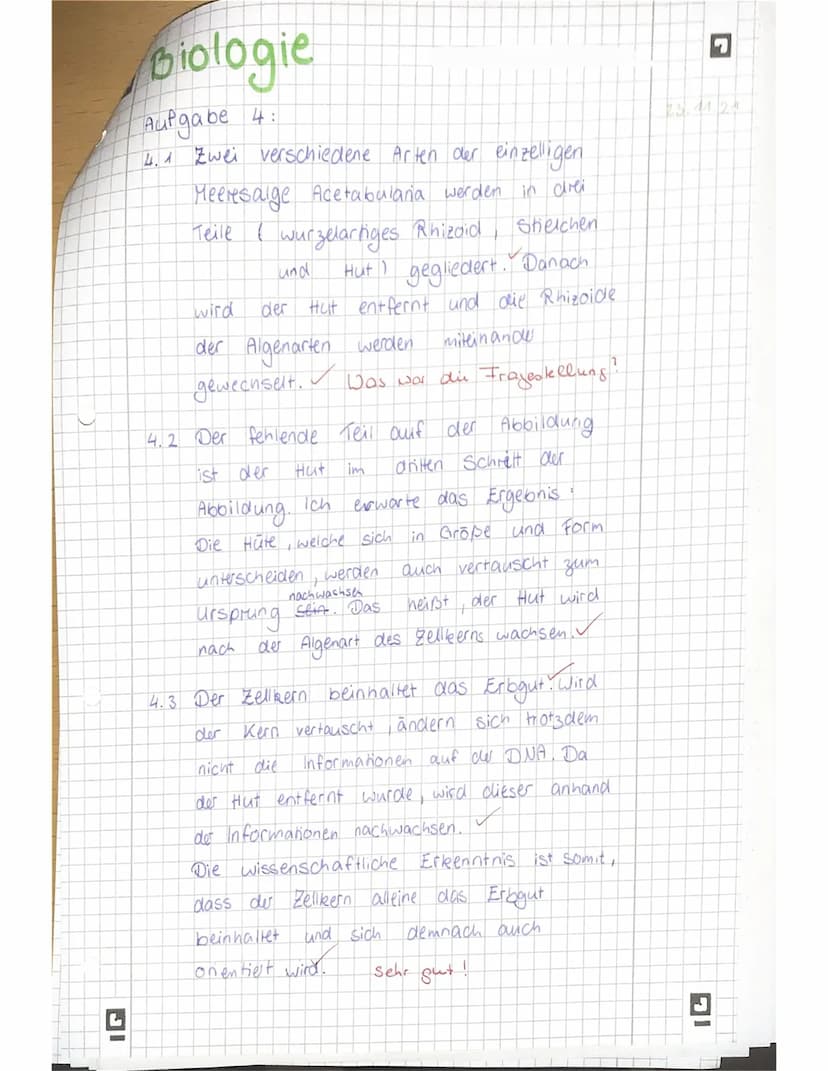 Biologie
23.11.21
Aufgabe 4:
4.1 Zwei verschiedene Arten der einzelligen
Meeresalge Acetabularia werden in drei
Teile ( wurzelartiges Rhizoid, Stielchen
und Hut) gegliedert. Danach
wird der Hut entfernt und die Rhizoide
der Algenarten werden miteinander
gewechselt. Was war die Fragestellung?
4.2 Der fehlende Teil auf der Abbildung
ist der Hut im dritten Schritt der
Abbildung. Ich erwarte das Ergebnis:
Die Hüte, welche sich in Größe und Form
unterscheiden, werden auch vertauscht zum
nachwachsen
Ursprung sein. Das heißt, der Hut wird
nach der Algenart des Zellkerns wachsen.
4.3 Der Zellkern beinhaltet das Erbgut. Wird
der Kern vertauscht, ändern sich trotzdem
nicht die Informationen auf der DNA. Da
der Hut entfernt wurde, wird dieser anhand
der Informationen nachwachsen.
Die wissenschaftliche Erkenntnis ist somit,
dass der Zellkern alleine das Erbgut
beinhaltet und sich demnach auch
orientiert wird. Sehr gut!